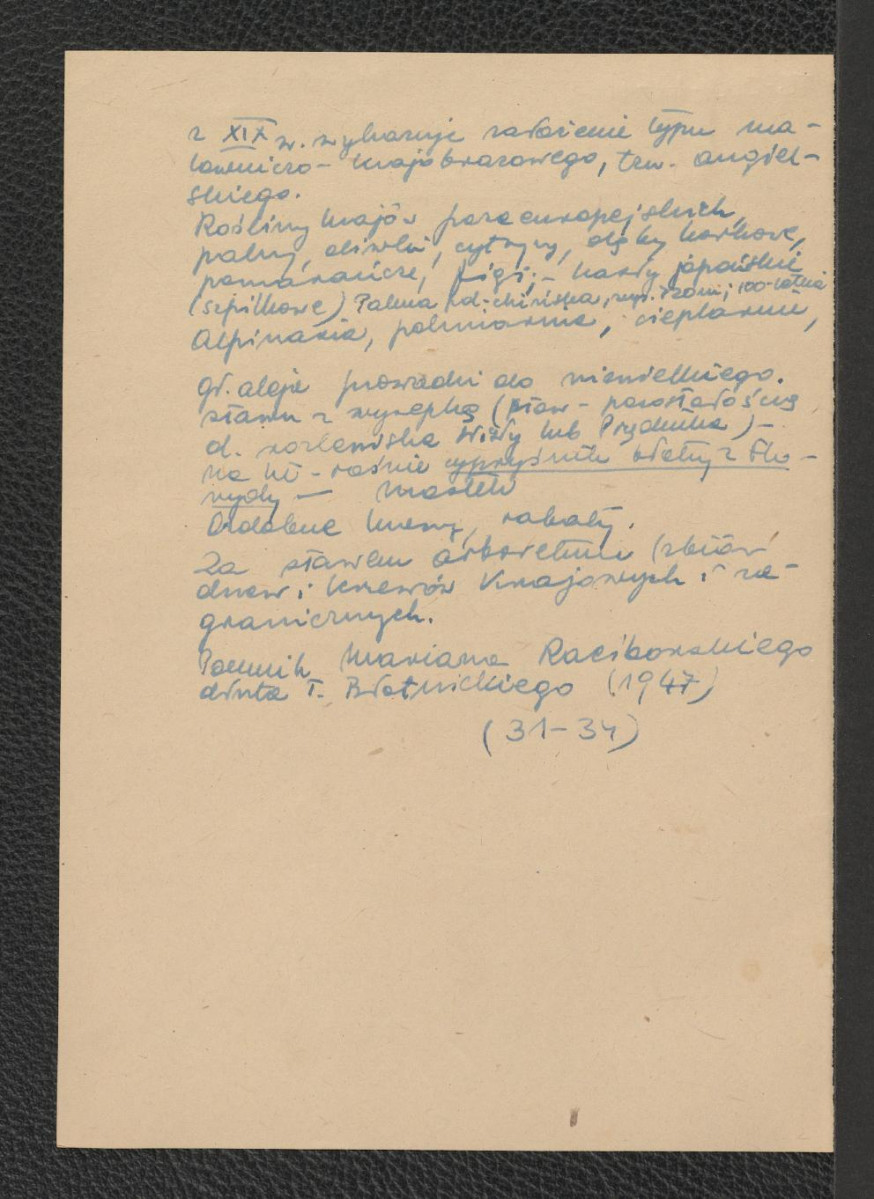 z XIX w. wykazuje założenie typu ma-
lowniczo-krajobrazowego, tzw. angiel-
skiego.
Rośliny krajów pozaeuropejskich,
palmy, oliwki, cytryny, dęby korkowe,
pomarańcze, figi; - karły japońskie
(szpilkowe) Palma pd-chińska, wys. 120 m; 100-letnia
Alpinaria, palmiarnie, cieplarnie,
gł. aleja prowadzi do niewielkiego
stawu z wysepką (staw - pozostałością
d. rozlewiska Wisły lub Prądnika) -
na nź - rośnie cypryśnik błotny z Flo-
rydy -
Ozdobne krzewy, rabaty.
Za stawem arboretum (zbiór
drzew i krzewów krajowych i za-
granicznych.
Pomnik Mariana Raciborskiego
dłuta T. Błotnickiego (1947)
(31-34)